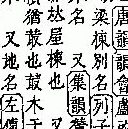 唐韻韻會盧
梁棟別名列子
名 又集韻
屋棟也 又
猶敢也鼓木于
又地名左傳